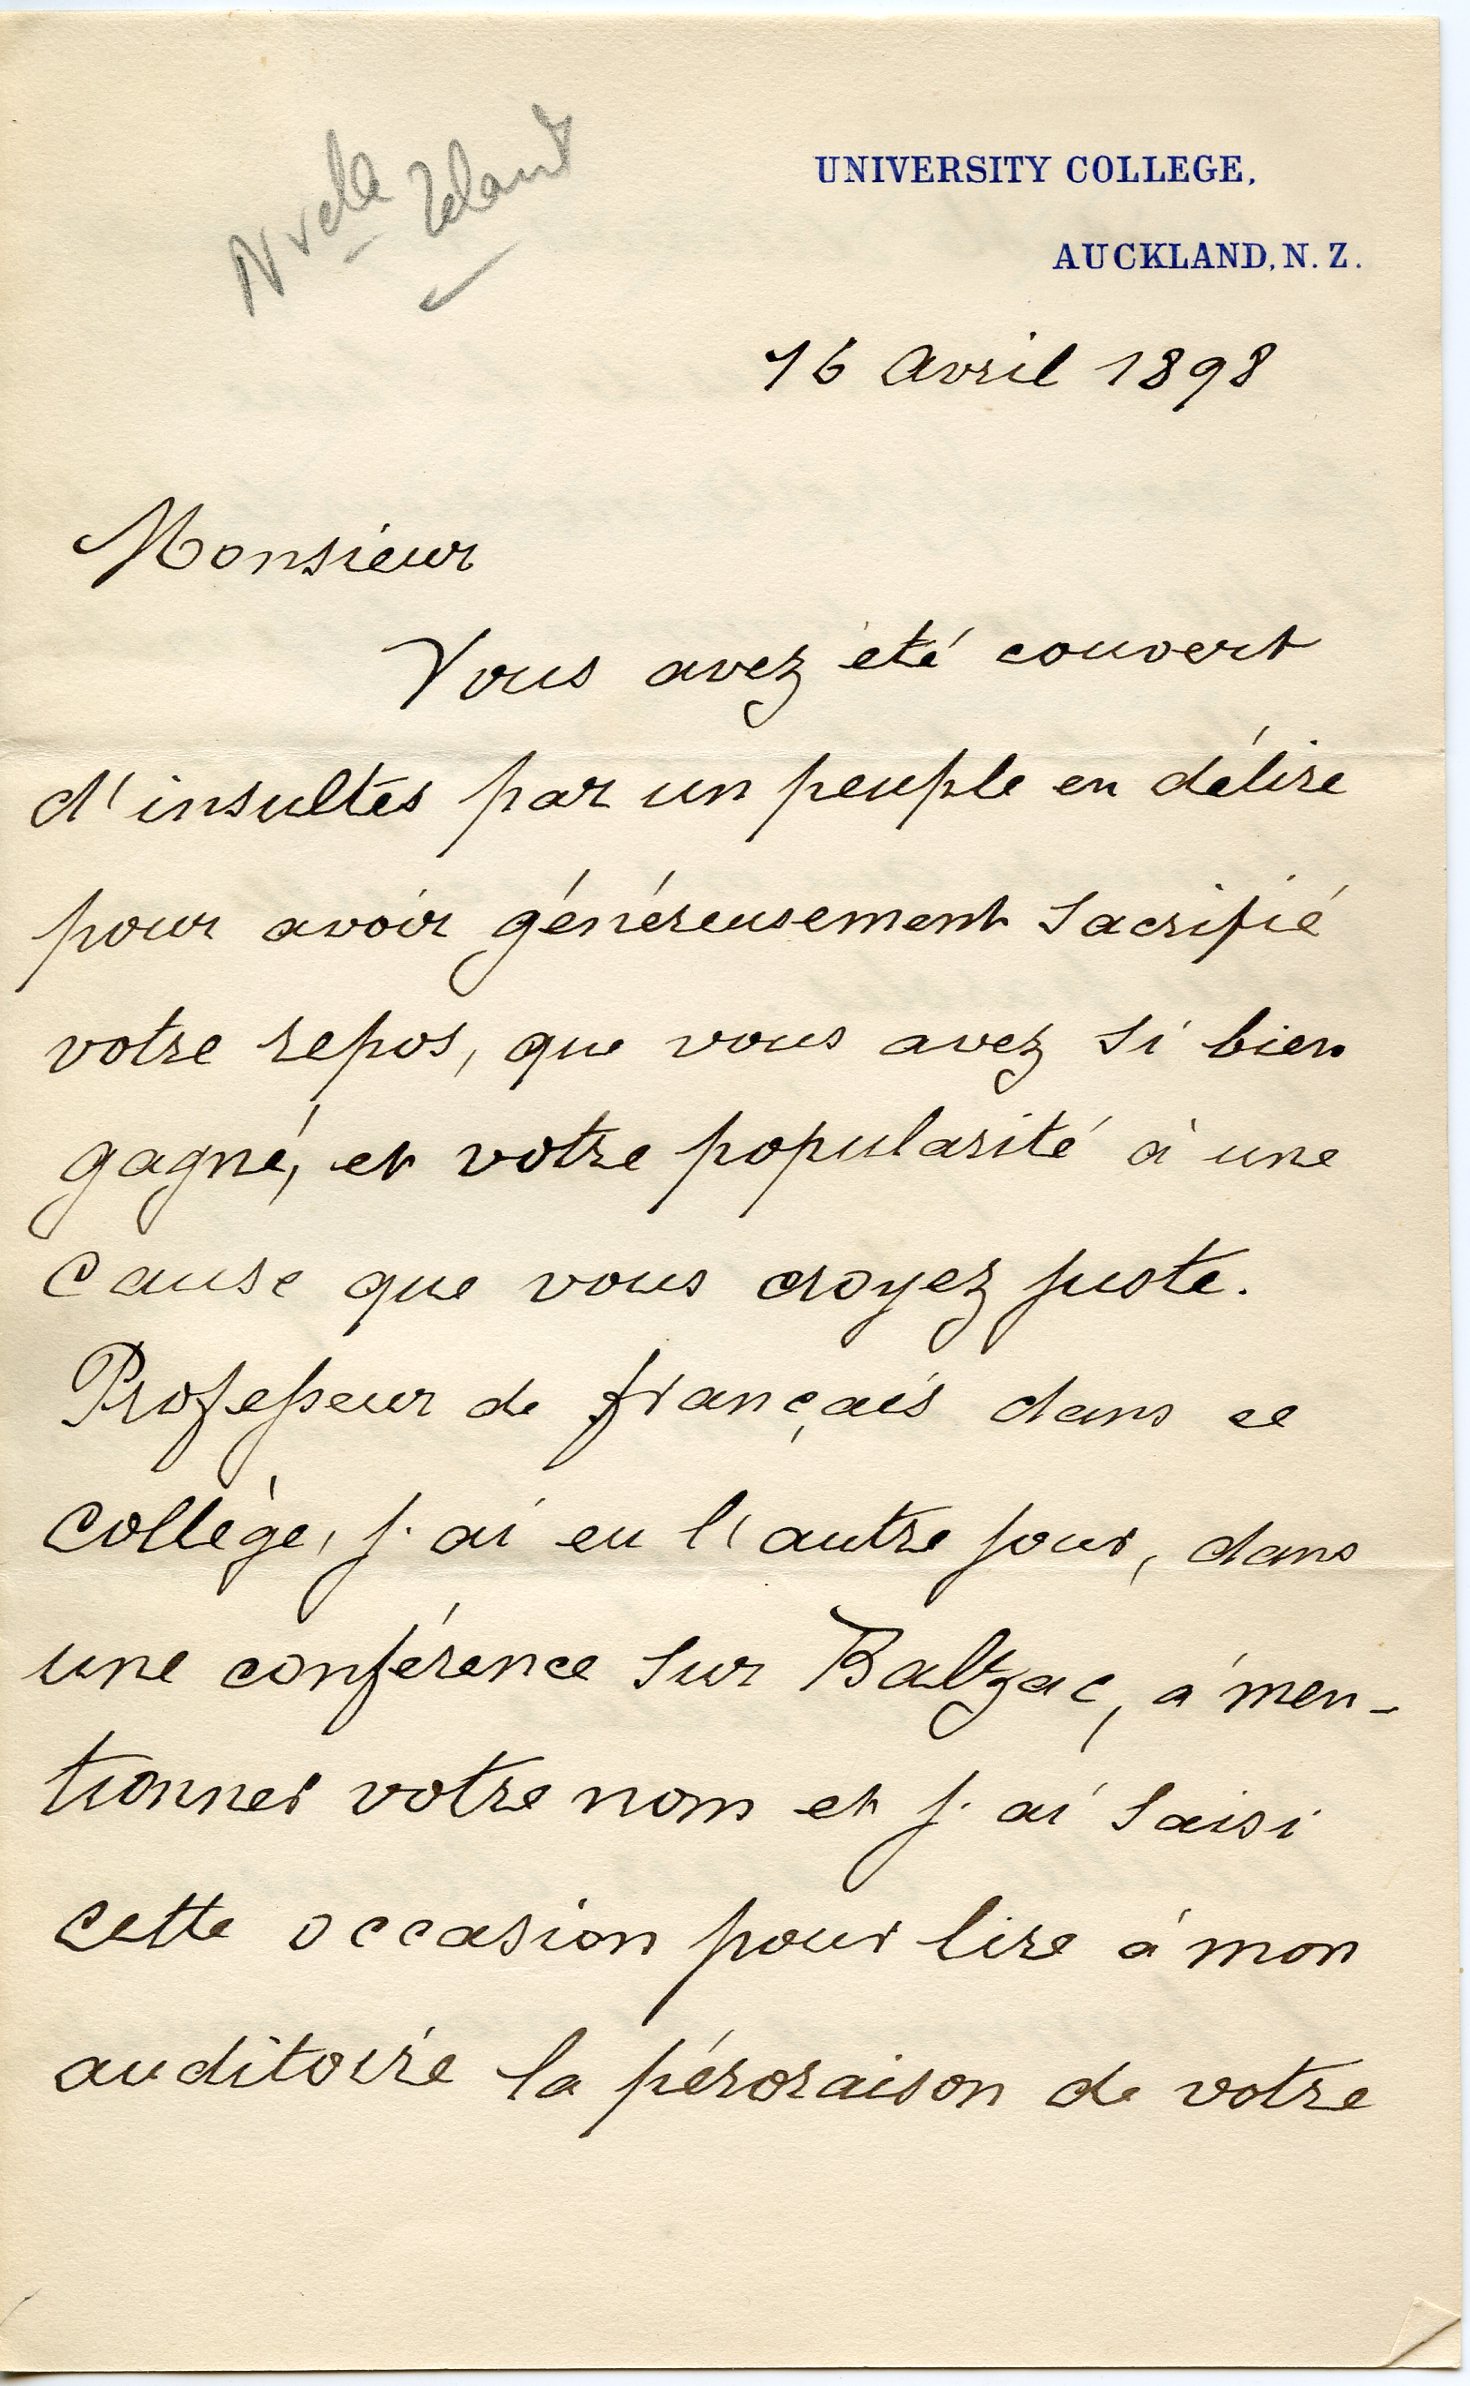 Nvelle Zeland
UNIVERSITY COLLEGE,
AUCKLAND, N. Z.
16 Avril 1898
Monsieur
Vous avez été couvert
d'insultes par un peuple en délire
pour avoir généreusement sacrifié
votre repos, que vous avez si bien
gagné, et votre popularité à une
cause que vous croyez juste.
Professeur de français dans ce
collège, j'ai eu l'autre jour, dans
une conférence sur Baltzac, à men-
tionner votre nom et j'ai saisi
cette occasion pour lire à mon
auditoire la péroraison de votre